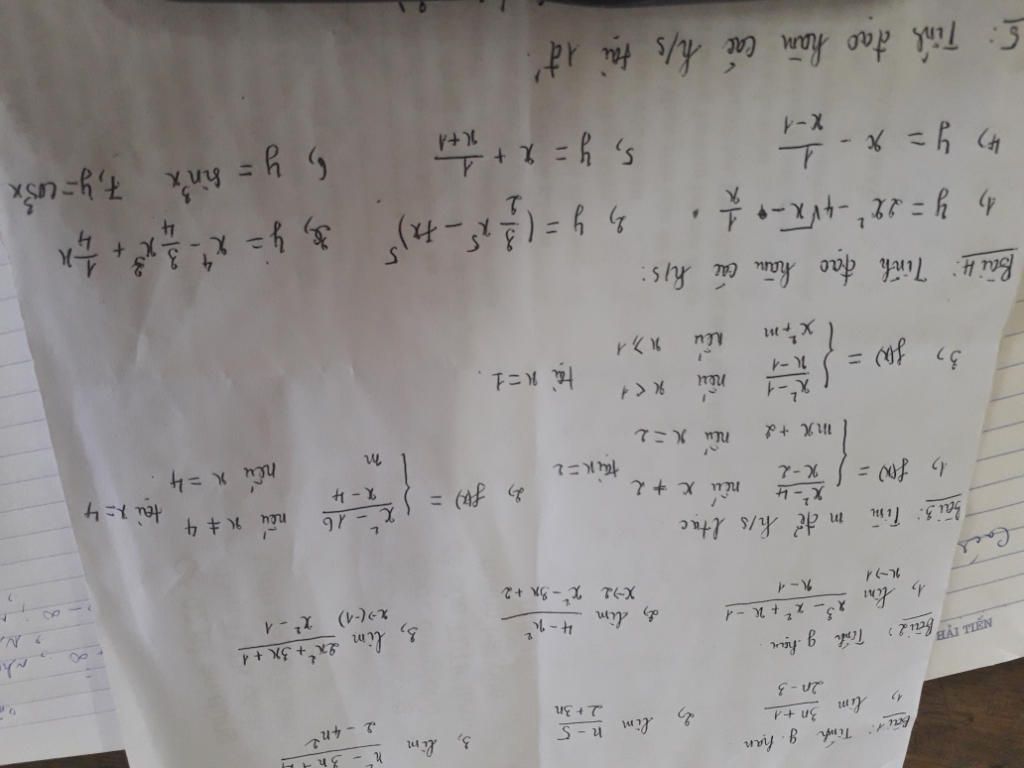 Bài 1: Tính g. hạn
1, lim \frac{3n+1}{2n-3}   2, lim \frac{n-5}{2+3n}   3, lim \frac{n^2-3n+4}{2-4n^2}
Bài 2: Tính g hạn.
1, lim_{x→1} \frac{x^3-x^2+x-1}{x-1}   2, lim_{x→2} \frac{4-x^2}{x^2-3x+2}   3, lim_{x→(-1)} \frac{2x^2+3x+1}{x^2-1}
Bài 3: Tìm m để h/s ltục
1, f(x) = { \frac{x^2-4}{x-2} nếu x ≠ 2; mx+2 nếu x = 2   tại x=2   2, f(x) = { \frac{x^2-16}{x-4} nếu x ≠ 4; m nếu x = 4.   tại x=4
3, f(x) = { \frac{x^2-1}{x-1} nếu x < 1; x^2+m nếu x ≥ 1   tại x=1.
Bài 4: Tính đạo hàm các h/s:
1, y = 2x^2 - 4\sqrt{x} - \frac{1}{x}.   2, y = (\frac{3}{2}x^5 - 7x)^5   3, y = x^4 - \frac{3}{4}x^3 + \frac{1}{4}x
4, y = x - \frac{1}{x-1}   5, y = x + \frac{1}{x+1}   6, y = sin^3x   7, y = cos^3x
5: Tính đạo hàm các h/s tại 1đ'
HẢI TIẾN